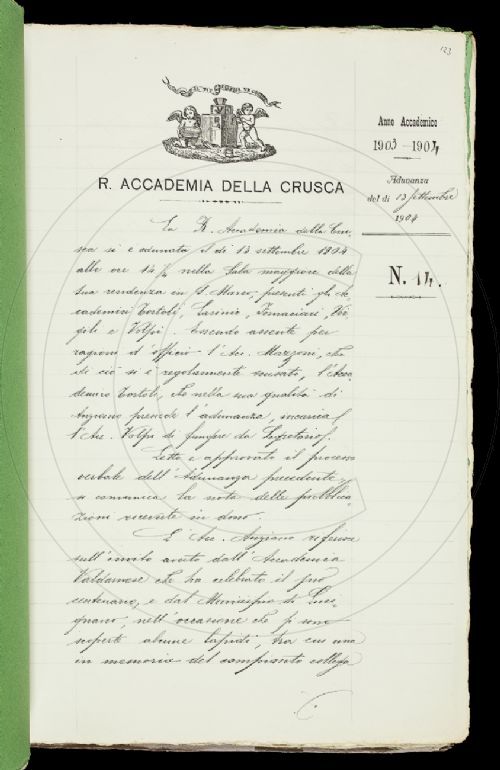 123
Anno Accademico
1903-1904
R. ACCADEMIA DELLA CRUSCA
Adunanza
del dì 13 Settembre
1904
N. 14.
La R. Accademia della Cru-
sca si è adunata il dì 13 settembre 1904
alle ore 14 ½ nella Sala maggiore della
sua residenza in S. Marco, presenti gli Ac-
cademici Tortoli, Casini, Fornaciari, Vir-
gili e Volpi. Essendo assente per
ragioni d'officio l'Ac. Mazzoni, che
di ciò si è regolarmente scusato, l'Acca-
demico Tortoli, che nella sua qualità di
Anziano presiede l'adunanza, incarica
l'Ac. Volpi di fungere da Segretario.
Letto e approvato il processo
verbale dell'Adunanza precedente,
si comunica la nota delle pubblica-
zioni ricevute in dono.
L'Ac. Anziano riferisce
sull'invito avuto dall'Accademia
Valdarnese che ha celebrato il suo
centenario, e dal Municipio di
nell'occasione che si sono
scoperte alcune lapidi, tra cui una
in memoria del compianto collega